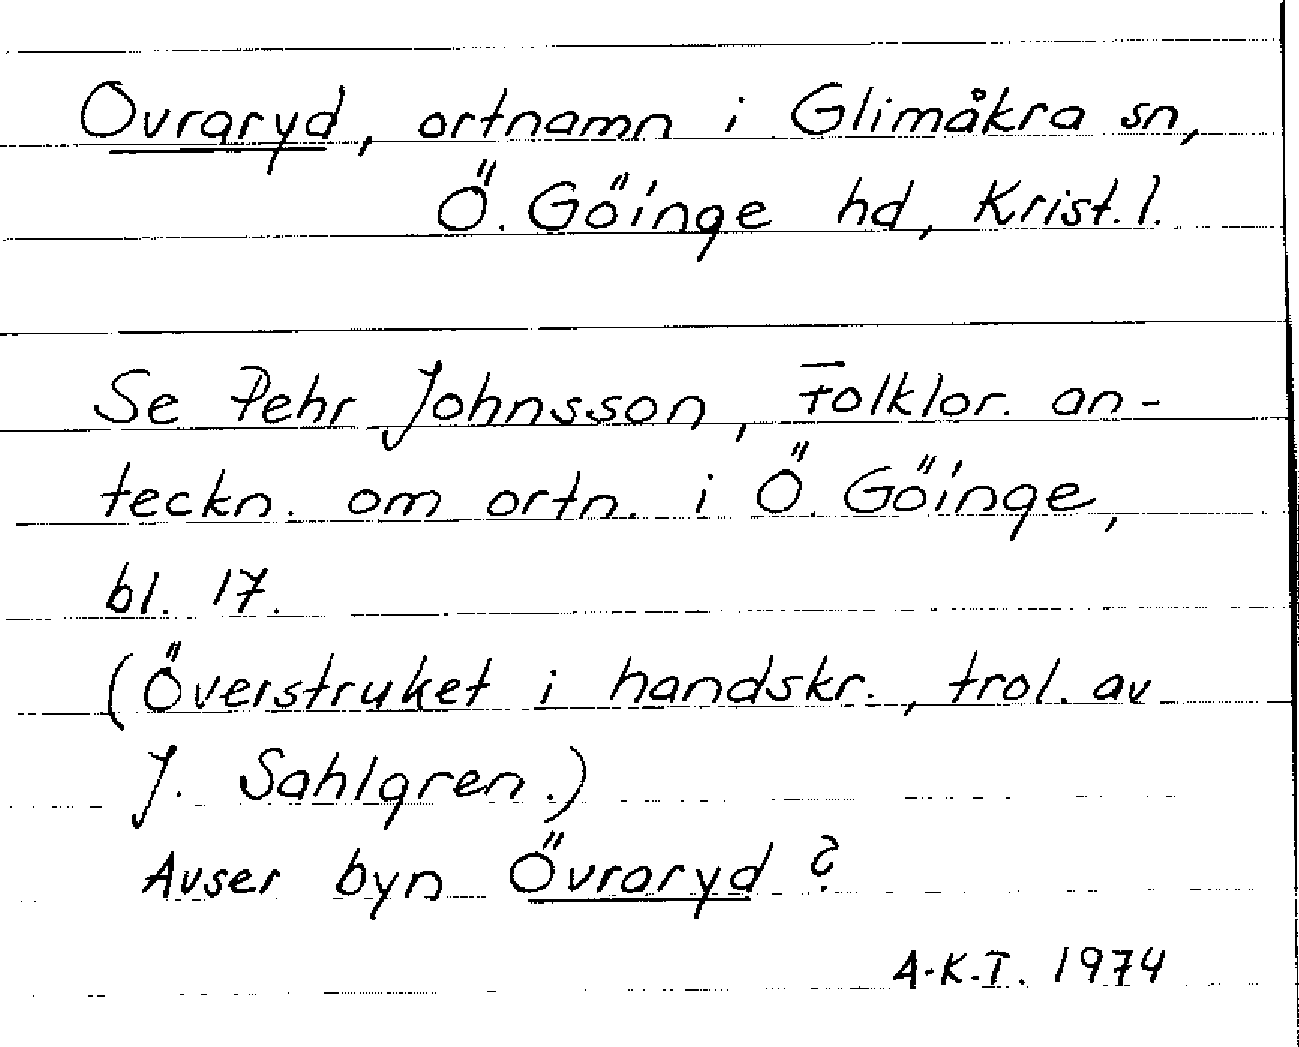 Ovraryd, ortnamn i Glimåkra sn,
Ö. Göinge hd, Krist. l.
Se Pehr Johnsson, Folklor. an-
teckn. om ortn. i Ö. Göinge,
bl. 17.
(Överstruket i handskr., trol. av
J. Sahlgren.)
Avser byn Övraryd?
A-K.T. 1974